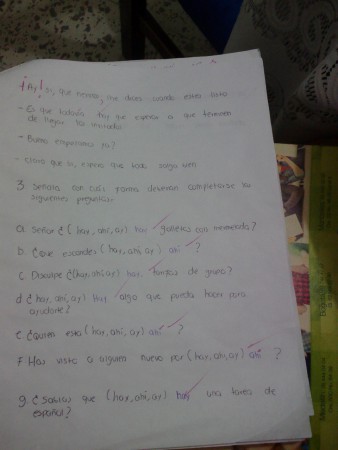 ¡Ay! si, que me dices cuando estes listo
- Es que todavía hay que esperar a que terminen
de llegar los invitados
- Bueno empezamos ya?
- Claro que si, espero que todo salga bien
3 Señala con cual forma deberan completarse las
siguientes preguntas:
a Señor ¿(hay, ahi, ay) hay galletas con mermelada?
b ¿Que escondes (hay, ahi, ay) ahi ?
c Disculpe ¿(hay, ahi, ay) hay tarea de grupo?
d ¿(hay, ahi, ay) Hay algo que pueda hacer para
ayudarte?
e ¿Quien esta (hay, ahi, ay) ahi ?
f Has visto a alguien nuevo por (hay, ahi, ay) ahi ?
g ¿Sabias que (hay, ahi, ay) hay una tarea de
español?